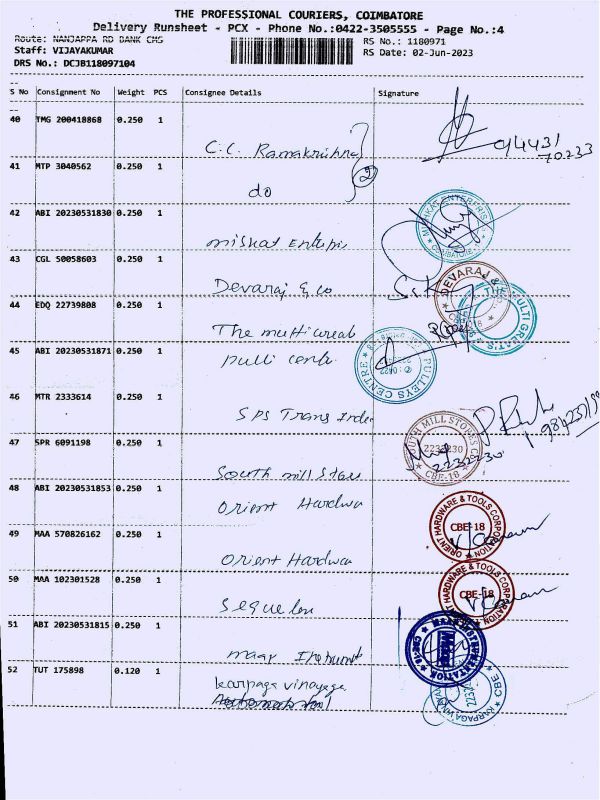 THE PROFESSIONAL COURIERS, COIMBATORE
Delivery Runsheet - PCX - Phone No.:0422-3505555 - Page No.:4
Route: NANJAPPA RD BANK CMS RS No.: 1180971
Staff: VIJAYAKUMAR RS Date: 02-Jun-2023
DRS No.: DCJB118097104
S No Consignment No Weight PCS Consignee Details Signature
40 TMG 200418868 0.250 1
C.C. Ramakrishna
41 MTP 3040562 0.250 1
do
2
42 ABI 20230531830 0.250 1
43 CGL 50058603 0.250 1
Devaraj & co
DEVARAJ &
CBE-18
44 EDQ 22739808 0.250 1
The multi
45 ABI 20230531871 0.250 1
PULLEYS CENTRE
46 MTR 2333614 0.250 1
SPS Trans
47 SPR 6091198 0.250 1
South mill Stores
SOUTH MILL STORES
2232230
2232230
CBE-18
48 ABI 20230531853 0.250 1
Orient Hardwa
ORIENT HARDWARE & TOOLS CORPORATION
CBE-18
49 MAA 570826162 0.250 1
Orient Hardwa
ORIENT HARDWARE & TOOLS CORPORATION
CBE-18
50 MAA 102301528 0.250 1
51 ABI 20230531815 0.250 1
maax
52 TUT 175898 0.120 1
karpaga vinayaga
CBE